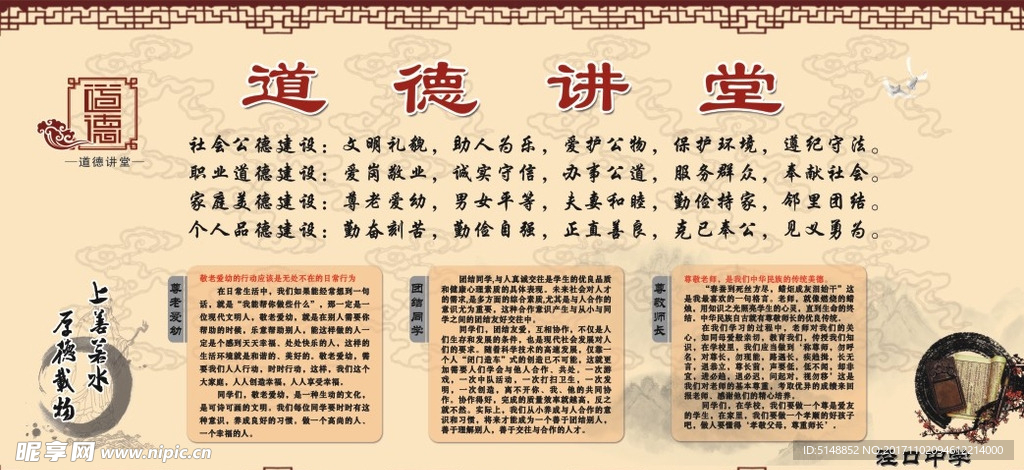 道德讲堂
道德
—道德讲堂—
社会公德建设：文明礼貌，助人为乐，爱护公物，保护环境，遵纪守法。
职业道德建设：爱岗敬业，诚实守信，办事公道，服务群众，奉献社会。
家庭美德建设：尊老爱幼，男女平等，夫妻和睦，勤俭持家，邻里团结。
个人品德建设：勤奋刻苦，勤俭自强，正直善良，克己奉公，见义勇为。
上善若水
厚德载物
尊老爱幼
敬老爱幼的行动应该是无处不在的日常行为
在日常生活中，我们如果能经常想到一句
话，就是“我能帮你做些什么”，那一定是一
位现代文明人。敬老爱幼，就是在别人需要你
帮助的时候，乐意帮助别人，能这样做的人一
定是个感到天天幸福、处处快乐的人，这样的
生活环境就是和谐的、美好的。敬老爱幼，需
要我们人人行动，时时行动，这样，我们这个
大家庭，人人创造幸福，人人享受幸福。
同学们，敬老爱幼，是一种生动的文化，
是可诗可画的文明。我们每位同学要时时有这
种意识，养成良好的习惯，做一个高尚的人、
一个幸福的人。
团结同学
团结同学，与人真诚交往是学生的优良品质
和健康心理素质的具体表现。未来社会对人才
的需求，是多方面的综合素质，尤其是与人合作的
意识尤为重要，这种合作意识产生与从小与同
学之间的团结友好交往中。
同学们，团结友爱，互相协作，不仅是人
们生存和发展的条件，也是现代社会发展对人
们的要求。随着科学技术的高速发展，仅靠一
个人“闭门造车”式的创造已不可能，这就更
加需要人们学会与他人合作、共处。一次游
戏，一次中队活动，一次打扫卫生，一次发
明，一次创造，离不开你、我、他的共同协
作。协作得好，完成的质量效率就越高，反之
就不然。实际上，我们从小养成与人合作的意
识和习惯，将来才能成为一个善于团结别人，
善于理解别人，善于交往与合作的人才。
尊敬师长
尊敬老师，是我们中华民族的传统美德。
“春蚕到死丝方尽，蜡炬成灰泪始干”这
是我最喜欢的一句格言。老师，就像燃烧的蜡
烛，用知识之光照亮学生的心灵，直到生命的终
结。中华民族自古就有尊敬师长的优良传统。
在我们学习的过程中，老师对我们的关
心，如同母爱般亲切，教育我们，传授我们知
识。在学校里，我们应当做到“称尊师，勿呼
名，对尊长，勿现能，路遇长，疾趋揖，长无
言，退恭立，尊长前，声要低，低不闻，却非
宜，进必趋，退必迟，问起对，视勿移”这是
我们对老师的基本尊重，考取优异的成绩来回
报老师、感谢他们的精心培养。
同学们，在学校，我们要做一个尊师爱友
的学生，在家里，我们要做一个孝顺的好孩子
吧，做人要懂得‘孝敬父母，尊重师长’。
昵享网 www.nipic.cn
ID:5148852 NO:20171102094612214000